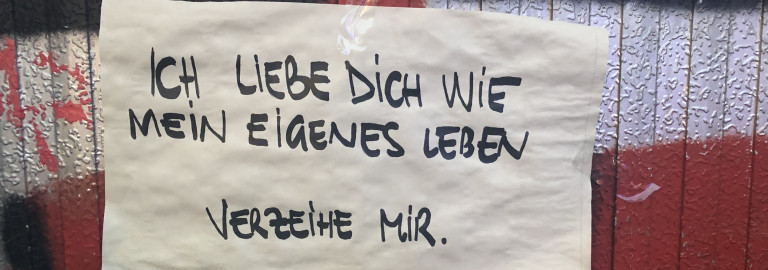 ICH LIEBE DICH WIE
MEIN EIGENES LEBEN
VERZEIHE MIR.